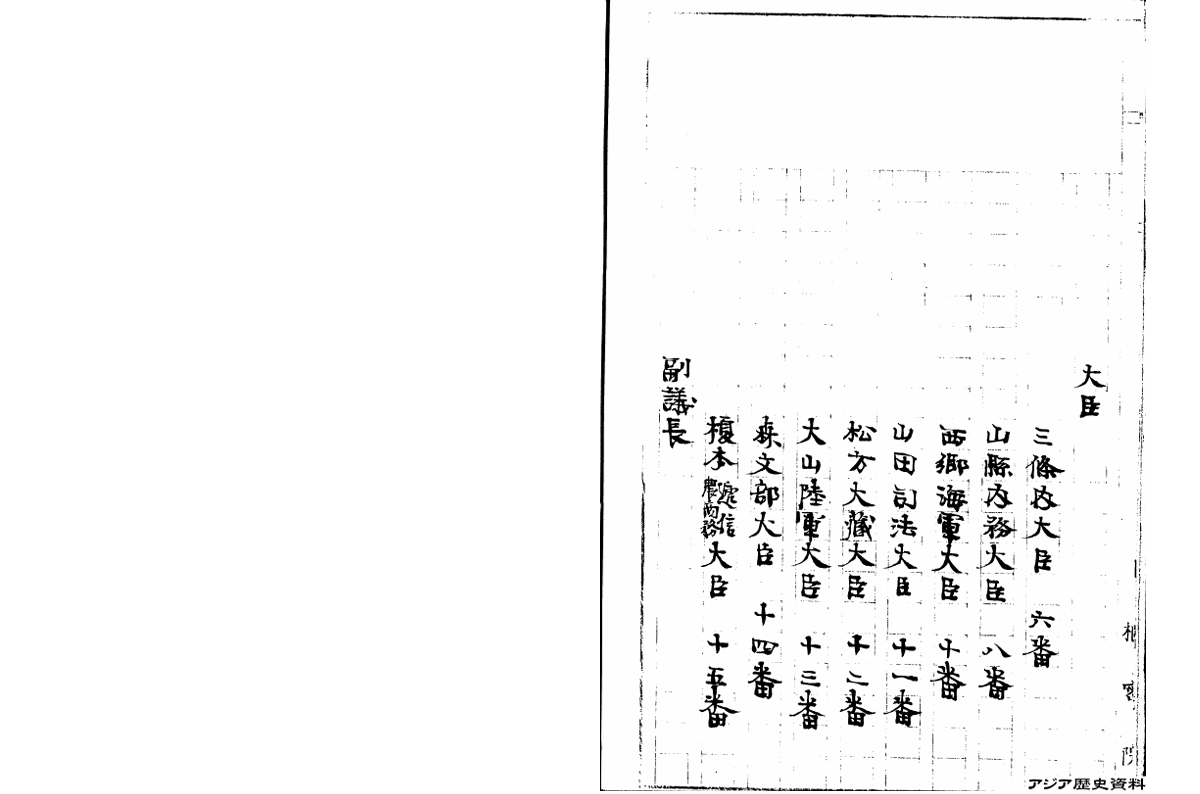 大臣
三條内大臣　六番
山縣内務大臣　八番
西郷海軍大臣　十番
山田司法大臣　十一番
松方大藏大臣　十二番
大山陸軍大臣　十三番
森文部大臣　十四番
榎本遞信農商務大臣　十五番
副議長
樞密院
アジア歴史資料